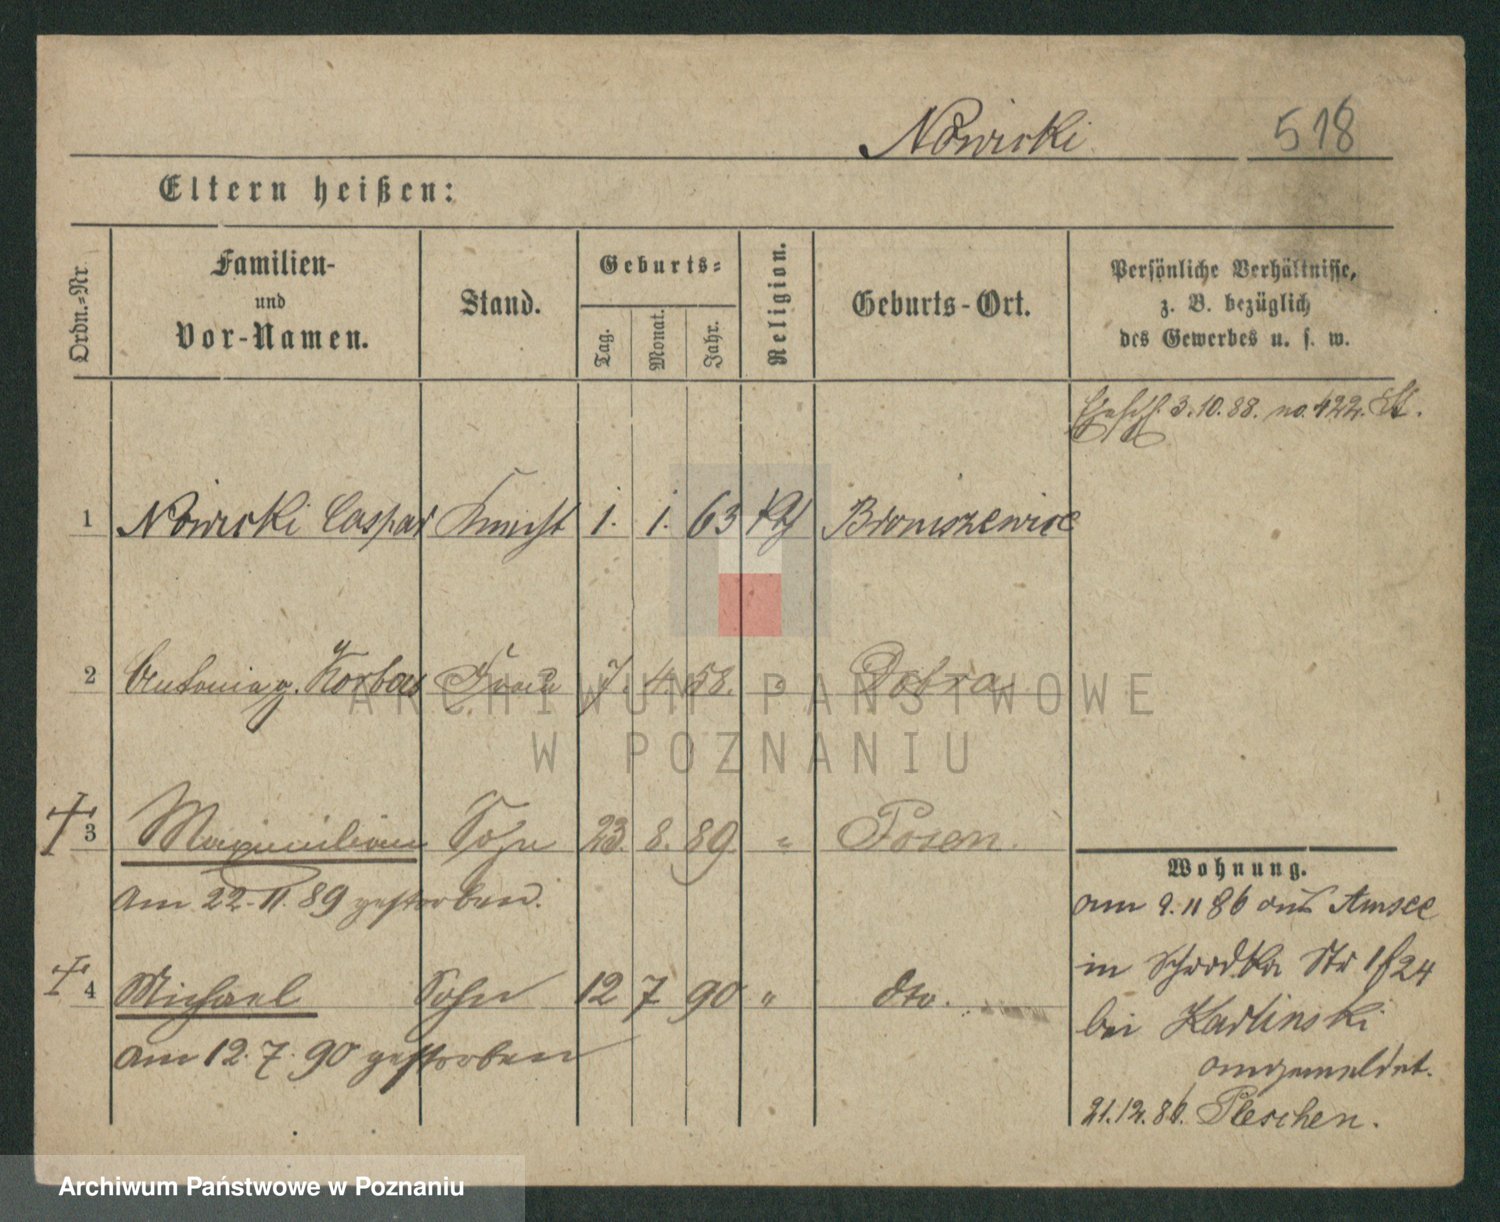 Nowicki 518
Eltern heißen:
Ordn.-Nr
Familien-
und
Vor-Namen.
Stand.
Geburts-
Tag.
Monat.
Jahr.
Religion.
Geburts-Ort.
Persönliche Verhältnisse,
z. B. bezüglich
des Gewerbes u. s. w.
3.10.88. no. 422.
1 Nowicki Caspar Knecht 1. 1. 63 Kth Broniszewice
2 Antonia g. Korbas Frau 7. 4. 58. " Dobra
3 Maximilian Sohn 23. 8. 89 " Posen.
am 22.11.89 gestorben.
4 Michael Sohn 12 7 90 " dto.
am 12.7.90 gestorben
Wohnung.
am 9.11 86 aus Amsee
in Schrodka Str 24
bei Karlinski
angemeldet.
21.12.86. Pleschen.
ARCHIWUM PAŃSTWOWE
W POZNANIU
Archiwum Państwowe w Poznaniu